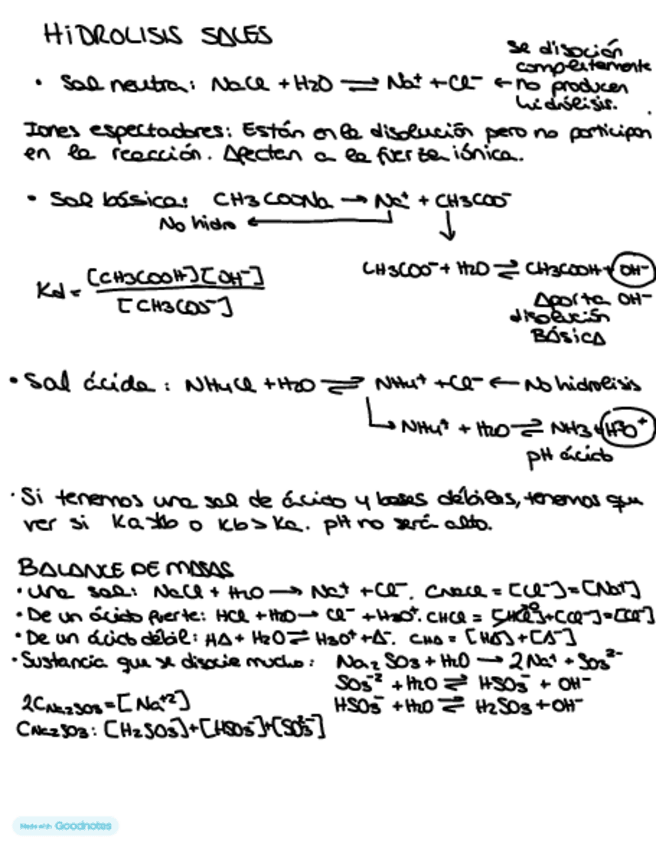 HIDROLISIS SALES
· Sal neutra: NaCl + H2O ⇌ Na+ + Cl- ← se disocian completamente no producen hidrólisis.
Iones espectadores: Están en la disolución pero no participan
en la reacción. Afectan a la fuerza iónica.
· Sal básica: CH3COONa → Na+ + CH3COO-
No hidro ←
CH3COO- + H2O ⇌ CH3COOH + OH-
Kd = [CH3COOH][OH-] / [CH3COO-]
Aporta OH-
disolución
BÁSICA
· Sal ácida: NH4Cl + H2O ⇌ NH4+ + Cl- ← No hidrolisis
↳ NH4+ + H2O ⇌ NH3 + H3O+
pH ácido
· Si tenemos una sal de ácido y bases débiles, tenemos que
ver si Ka>Kb o Kb>Ka. pH no será alto.
BALANCE DE MASAS
· Una sal: NaCl + H2O → Na+ + Cl-. CNaCl = [Cl-] = [Na+]
· De un ácido fuerte: HCl + H2O → Cl- + H3O+. CHCl = [HCl]0 + [Cl-] = [Cl-]
· De un ácido débil: HA + H2O ⇌ H3O+ + A-. CHA = [HA] + [A-]
· Sustancia que se disocie mucho: Na2SO3 + H2O → 2Na+ + SO3 2-
SO3-2 + H2O ⇌ HSO3- + OH-
HSO3- + H2O ⇌ H2SO3 + OH-
2CNa2SO3 = [Na+2]
CNa2SO3: [H2SO3] + [HSO3-] + [SO3-]
Made with Goodnotes